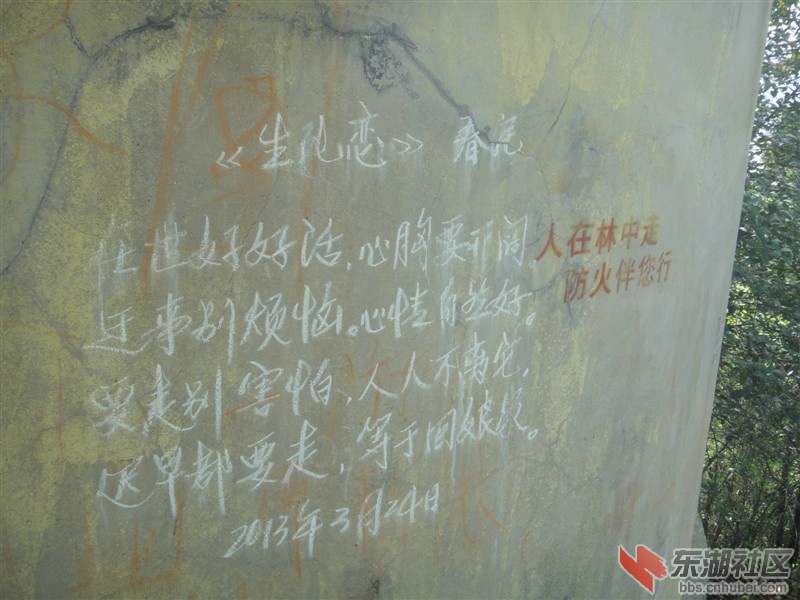 《生死恋》 春
在世好好活，心胸要开阔，
人在林中走
防火伴您行
遇事别烦恼。心情自然好。
要走别害怕，人人不离它，
迟早都要走，等于回娘家。
2013年3月24日
东湖社区
bbs.cnhubei.com